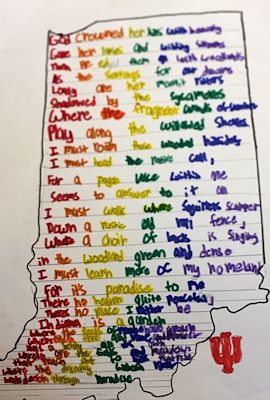 God crowned her hills with beauty
Gave her lakes and winding streams
Then He edged them all with woodlands
As the settings for our dreams
Lovely are her moonlit rivers
Shadowed by the sycamores
Where the fragrant winds of summer
Play along the willowed shores
I must roam those wooded hillsides
I must heed the native call,
For a pagan voice within me
Seems to answer to it all
I must walk where squirrels scamper
Down a rustic old rail fence,
Where a choir of birds is singing
in the woodland green and dense
I must learn more of my homeland
For it's paradise to me
There no haven quite peaceful,
There's no place I rather be
Indiana is a garden
Where the seeds of peace have grown
Where each tree and
Has a
Where the are
Where the
Where the dreamy Wabash River
Wanders through Paradise